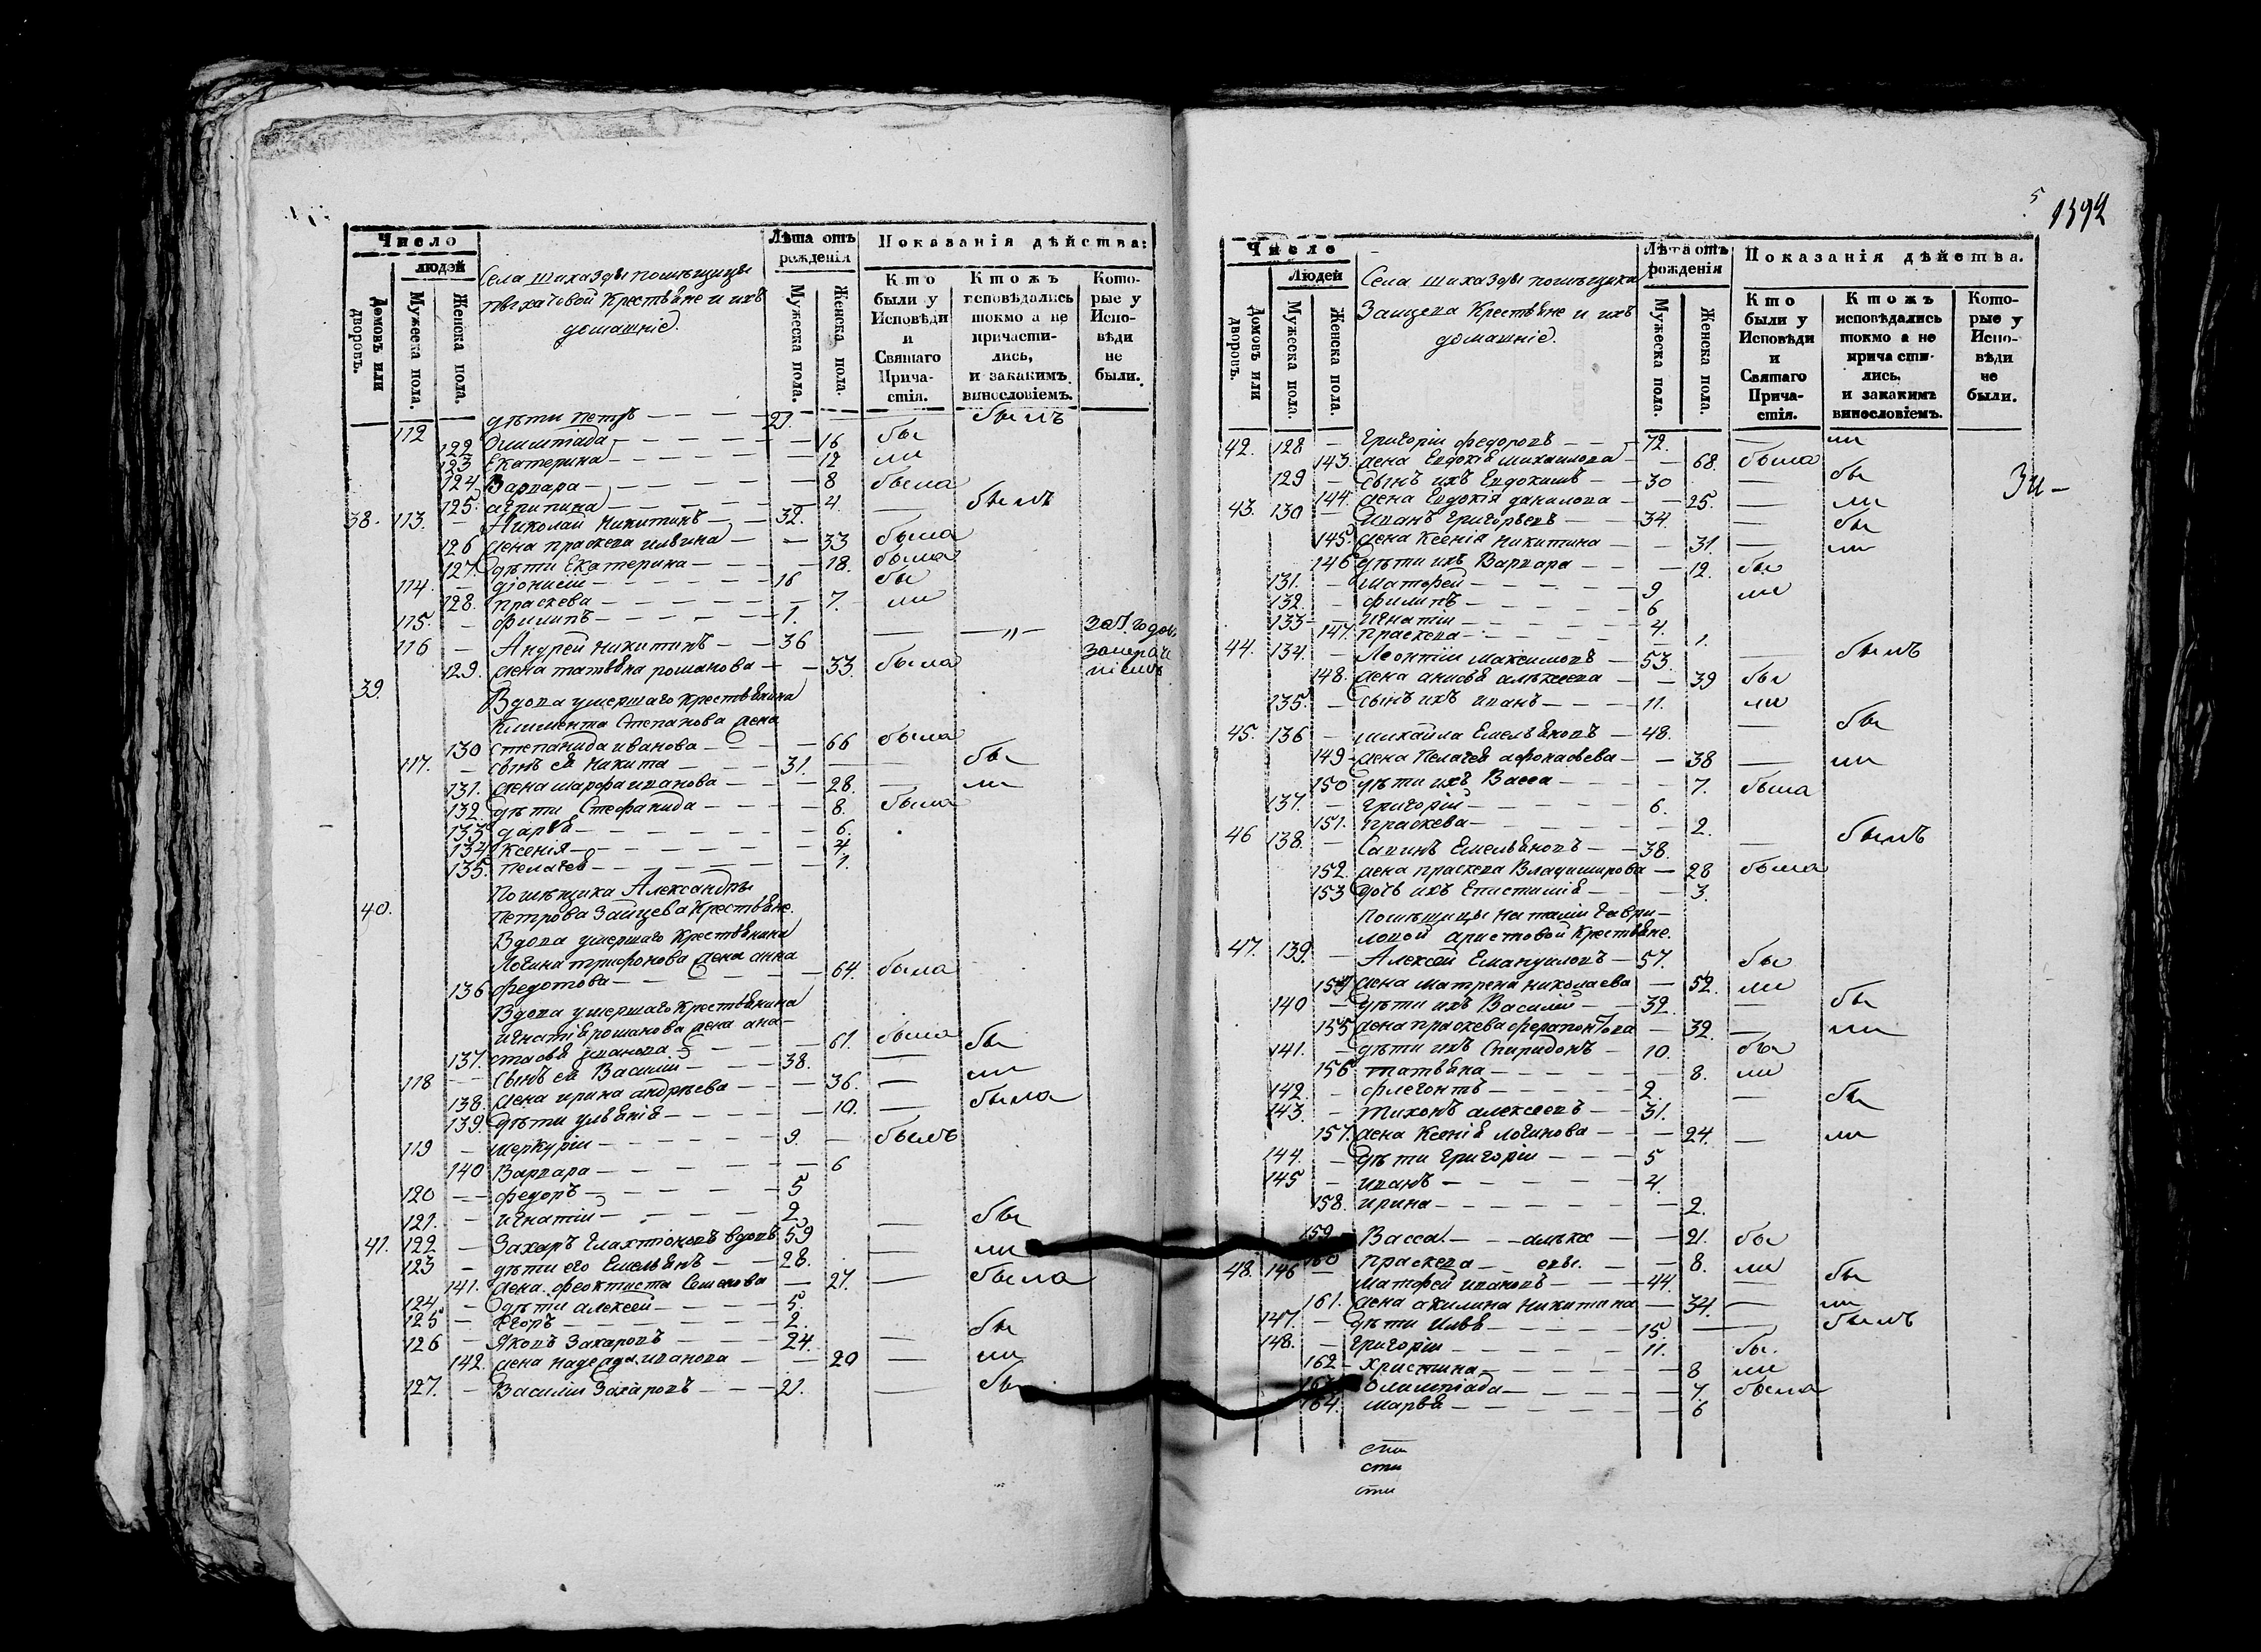 Число
людей
Домовъ или дворовъ.
Мужеска пола.
Женска пола.
Села Шихазды помѣщицы
Крестьяне и ихъ
домашніе.
Лѣта отъ рожденія
Мужеска пола.
Женска пола.
Показанія дѣйства:
Кто были у Исповѣди и Святаго Причастія.
Ктожъ исповѣдались токмо а не причастились, и закакимъ винословіемъ.
Которые у Исповѣди не были.
112 дѣти Петръ — 21. былъ
122 Олимпіада — 16 бы
123 Екатерина — 12 ли
124 Варвара — 8 была
125. Агрипина — 4. —
38. 113. — Николай Никитинъ — 32. былъ
126 жена Праскева Ильина — 33 была
127. дѣти Екатерина — 18. была
114. — Діонисій — 16 бы
128. Праскева — 7. ли
115. — Филипъ — 1.
116 — Андрей Никитинъ — 36 — —„—
129. жена Татьяна Романова — 33. была
39. Вдова умершаго Крестьянина
Климента Степанова жена
130 Степанида Иванова — 66 была
117. — сынъ ея Никита — 31. — бы
131. жена Марфа Иванова — 28. — ли
132. дѣти Стефанида — 8. была
133 Дарья — 6.
134 Ксенія — 4.
135. Пелагея — 1.
Помѣщика Александры
40. Петрова Зайцева Крестьяне.
Вдова умершаго Крестьянина
Логина Трифонова жена Анна
136 Федотова — 64. была
Вдова умершаго Крестьянина
Игнатія Романова жена Ана-
137. стасья Иванова — 61. была
118 — сынъ ея Василій — 38. — бы
138. жена Ирина Андрѣева — 36. — ли
139. дѣти Ульянія — 10. — была
119 — Меркурій — 9. — былъ
140 Варвара — 6
120 — Федоръ — 5
121. — Игнатій — 2
41. 122 — Захаръ Галахтіоновъ вдовъ 59 — бы
123 — дѣти его Емельянъ — 28. — ли
141. жена Феоктиста Семенова — 27. — была
124 — дѣти Алексей — 5.
125 — Егоръ — 2.
126 — Яковъ Захаровъ — 24. — бы
142. жена Надежда Иванова — 20 — ли
127. — Василій Захаровъ — 21. — бы
5 1592
Число
Людей
Домовъ или дворовъ.
Мужеска пола.
Женска пола.
Села Шихазды помѣщика
Зайцева Крестьяне и ихъ
домашніе.
Лѣта отъ рожденія
Мужеска пола.
Женска пола.
Показанія дѣйства.
Кто были у Исповѣди и Святаго Причастія.
Ктожъ исповѣдались токмо а не причастились, и закакимъ винословіемъ.
Которые у Исповѣди не были.
42. 128 — Григорій Федоровъ — 72. — ли
143. жена Евдокія Михаилова — 68. была
129 — сынъ ихъ Евдокимъ — 30 — бы
144. жена Евдокія Данилова — 25. — ли
43. 130 Иванъ Григорьевъ — 34. — бы
145. жена Ксенія Никитина — 31. — ли
146 дѣти ихъ Варвара — 12. бы
131. — Матфей — 9 ли
132. — Филипъ — 6
133 — Игнатій — 4.
147. Праскева — 1.
44. 134. — Леонтій Максимовъ — 53. — былъ
148. жена Анисья Алѣксеева — 39 бы
135. — сынъ ихъ Иванъ — 11. ли
45. 136 — Михайла Емельяновъ — 48. — бы
149 жена Пелагея Афонасьева — 38 — ли
150 дѣти ихъ Васса — 7. была
137. — Григорій — 6.
151. Праскева — 2.
46 138. — Савинъ Емельяновъ — 38. — былъ
152. жена Праскева Владимирова — 28 была
153 дочь ихъ Епистимія — 3.
Помѣщицы Наталіи Гаври-
ловой Аристовой Крестьяне.
47. 139. — Алексей Емануиловъ — 57. бы
154 жена Матрена Николаева — 52. ли
140 — дѣти ихъ Василій — 32. — бы
155 жена Праскева Ферапонтова — 32. — ли
141. — дѣти ихъ Спиридонъ — 10. бы
156 Татьяна — 8. ли
142. — Флегонтъ — 2.
143 — Тихонъ Алексеевъ — 31. — бы
157. жена Ксенія Логинова — 24. — ли
144. — дѣти Григорій — 5
145 — Иванъ — 4.
158. Ирина — 2.
159 Васса — алѣкс — 21. бы
160 Праскева — евы. — 8. ли
48. 146 — Матфей Ивановъ — 44. — бы
161. жена Акилина Никитина — 34. — ли
147. — дѣти Илья — 15. — былъ
148. — Григорій — 11. бы.
162 Христина — 8 ли
163 Олимпіада — 7. была
164. Марья — 6
сти
сти
сти